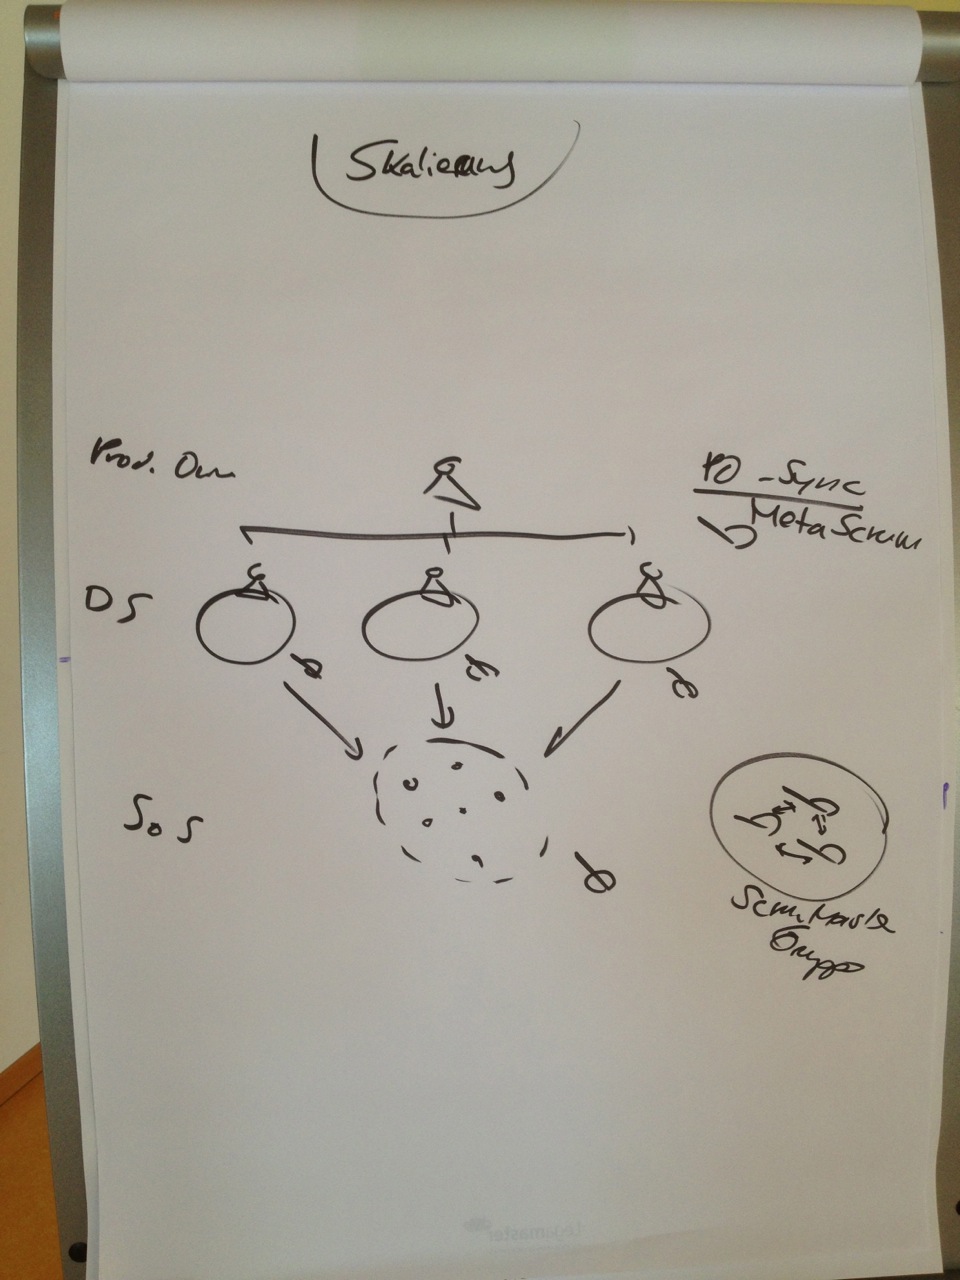 Skalierung
Prod. Own
PO-Sync
MetaScrum
DS
SoS
Scrum Master
Gruppe